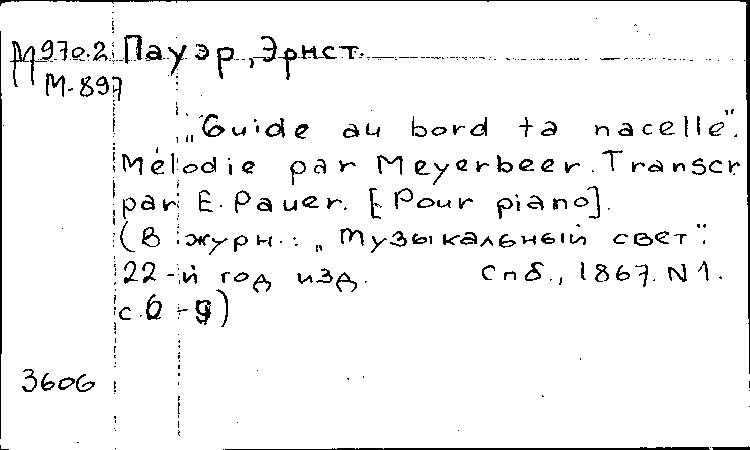 М970.2 Пауэр, Эрнст.
М-897
„Guide au bord ta nacelle".
Mélodie par Meyerbeer. Transcr
par E. Pauer. [Pour piano].
(В журн.: „Музыкальный свет".
22-й год изд. Спб., 1867. N1.
с. 6-9)
3606